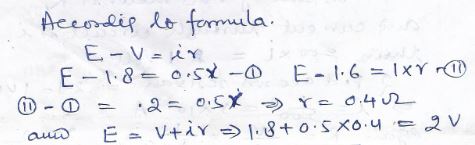 Accordig to formula.
E - V = ir
E - 1.8 = 0.5r - ① E - 1.6 = 1×r - ⑪
⑪ - ① = .2 = 0.5r ⇒ r = 0.4 Ω
and E = V+ir ⇒ 1.8+0.5×0.4 = 2V